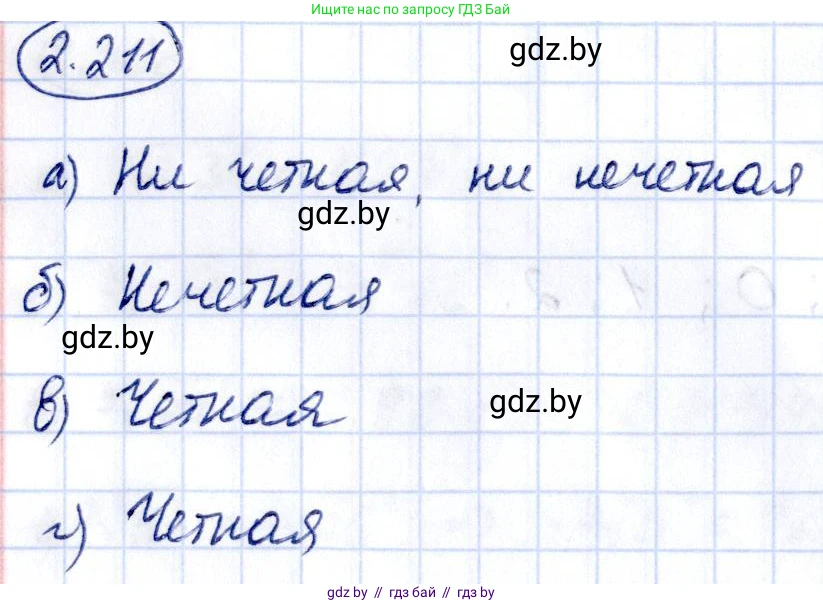 Ищите нас по запросу ГДЗ Бай
2.211
gdz.by
а) Ни четная, ни нечетная
gdz.by
б) Нечетная
gdz.by
в) Четная
gdz.by
г) Четная
gdz.by // гдз бай // гдз by